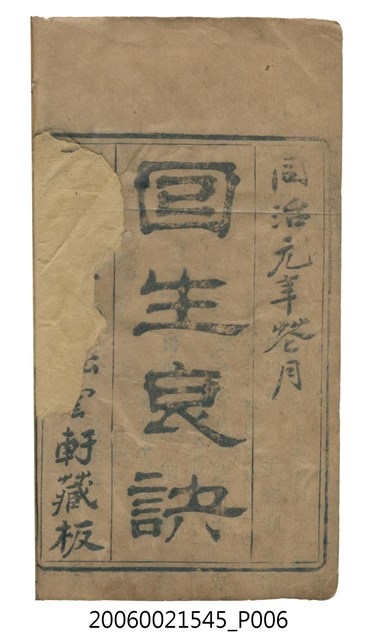 同治元年𦶜月
回生良訣
雲軒藏板
20060021545_P006